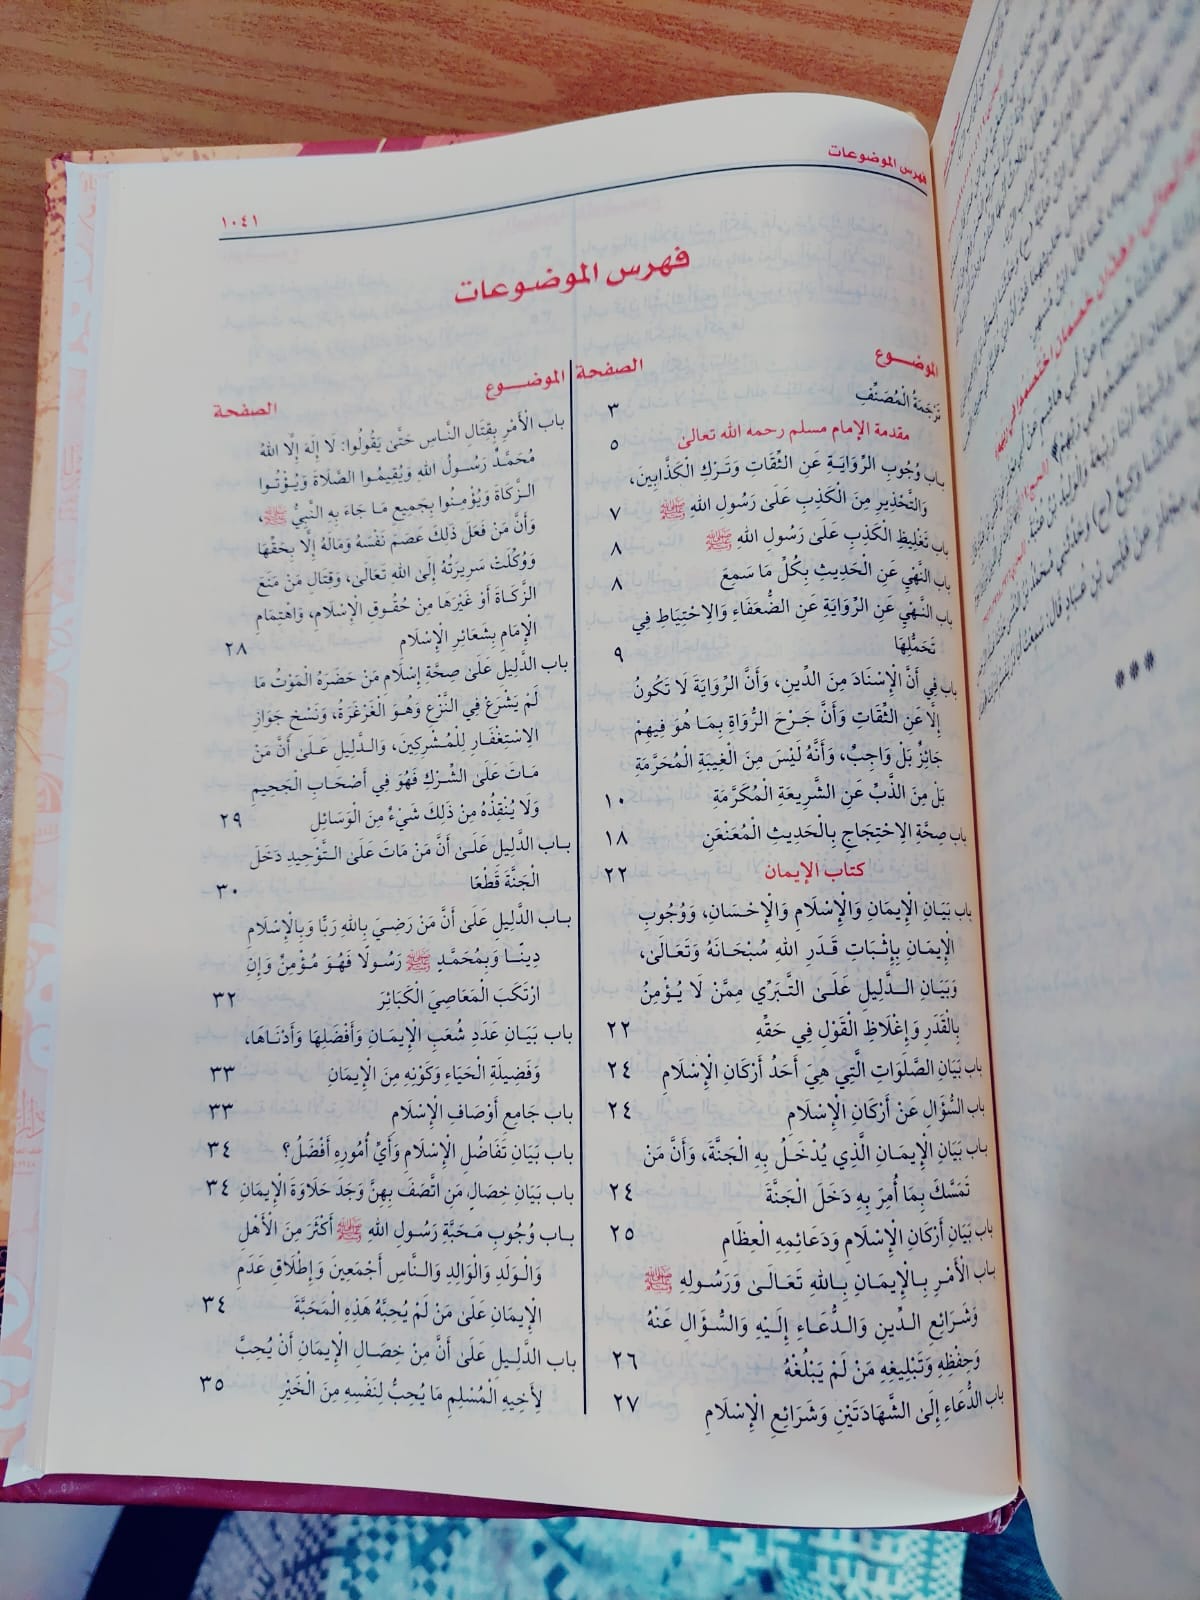 فهرس الموضوعات
١٠٤١
فهرس الموضوعات
الموضـــوع الصفحة
تَرْجَمَةُ الْمُصَنِّفِ ٣
مقدمة الإمام مسلم رحمه الله تعالى ٥
باب وُجُوبِ الرِّوَايَةِ عَنِ الثِّقَاتِ وَتَرْكِ الْكَذَّابِينَ،
وَالتَّحْذِيرِ مِنَ الْكَذِبِ عَلَىٰ رَسُولِ اللهِ ﷺ ٧
باب تَغْلِيظِ الْكَذِبِ عَلَىٰ رَسُولِ اللهِ ﷺ ٨
باب النَّهْيِ عَنِ الْحَدِيثِ بِكُلِّ مَا سَمِعَ ٨
باب النَّهْيِ عَنِ الرِّوَايَةِ عَنِ الضُّعَفَاءِ وَالِاحْتِيَاطِ فِي
تَحَمُّلِهَا ٩
باب فِي أَنَّ الْإِسْنَادَ مِنَ الدِّينِ، وَأَنَّ الرِّوَايَةَ لَا تَكُونُ
إِلَّا عَنِ الثِّقَاتِ وَأَنَّ جَرْحَ الرُّوَاةِ بِمَا هُوَ فِيهِمْ
جَائِزٌ بَلْ وَاجِبٌ، وَأَنَّهُ لَيْسَ مِنَ الْغِيبَةِ الْمُحَرَّمَةِ
بَلْ مِنَ الذَّبِّ عَنِ الشَّرِيعَةِ الْمُكَرَّمَةِ ١٠
باب صِحَّةِ الِاحْتِجَاجِ بِالْحَدِيثِ الْمُعَنْعَنِ ١٨
كتاب الإيمان ٢٢
باب بَيَانِ الْإِيمَانِ وَالْإِسْلَامِ وَالْإِحْسَانِ، وَوُجُوبِ
الْإِيمَانِ بِإِثْبَاتِ قَدَرِ اللهِ سُبْحَانَهُ وَتَعَالَىٰ،
وَبَيَانِ الدَّلِيلِ عَلَىٰ التَّبَرِّي مِمَّنْ لَا يُؤْمِنُ
بِالْقَدَرِ وَإِغْلَاظِ الْقَوْلِ فِي حَقِّهِ ٢٢
باب بَيَانِ الصَّلَوَاتِ الَّتِي هِيَ أَحَدُ أَرْكَانِ الْإِسْلَامِ ٢٤
باب السُّؤَالِ عَنْ أَرْكَانِ الْإِسْلَامِ ٢٤
باب بَيَانِ الْإِيمَانِ الَّذِي يُدْخَلُ بِهِ الْجَنَّةَ، وَأَنَّ مَنْ
تَمَسَّكَ بِمَا أُمِرَ بِهِ دَخَلَ الْجَنَّةَ ٢٤
باب بَيَانِ أَرْكَانِ الْإِسْلَامِ وَدَعَائِمِهِ الْعِظَامِ ٢٥
باب الْأَمْرِ بِالْإِيمَانِ بِاللهِ تَعَالَىٰ وَرَسُولِهِ ﷺ
وَشَرَائِعِ الدِّينِ وَالدُّعَاءِ إِلَيْهِ وَالسُّؤَالِ عَنْهُ
وَحِفْظِهِ وَتَبْلِيغِهِ مَنْ لَمْ يَبْلُغْهُ ٢٦
باب الدُّعَاءِ إِلَىٰ الشَّهَادَتَيْنِ وَشَرَائِعِ الْإِسْلَامِ ٢٧
الموضـــوع الصفحة
باب الْأَمْرِ بِقِتَالِ النَّاسِ حَتَّىٰ يَقُولُوا: لَا إِلَهَ إِلَّا اللهُ
مُحَمَّدٌ رَسُولُ اللهِ وَيُقِيمُوا الصَّلَاةَ وَيُؤْتُوا
الزَّكَاةَ وَيُؤْمِنُوا بِجَمِيعِ مَا جَاءَ بِهِ النَّبِيُّ ﷺ،
وَأَنَّ مَنْ فَعَلَ ذَلِكَ عَصَمَ نَفْسَهُ وَمَالَهُ إِلَّا بِحَقِّهَا
وَوُكِّلَتْ سَرِيرَتُهُ إِلَىٰ اللهِ تَعَالَىٰ، وَقِتَالِ مَنْ مَنَعَ
الزَّكَاةَ أَوْ غَيْرَهَا مِنْ حُقُوقِ الْإِسْلَامِ، وَاهْتِمَامِ
الْإِمَامِ بِشَعَائِرِ الْإِسْلَامِ ٢٨
باب الدَّلِيلِ عَلَىٰ صِحَّةِ إِسْلَامِ مَنْ حَضَرَهُ الْمَوْتُ مَا
لَمْ يَشْرَعْ فِي النَّزْعِ وَهُوَ الْغَرْغَرَةُ، وَنَسْخِ جَوَازِ
الِاسْتِغْفَارِ لِلْمُشْرِكِينَ، وَالدَّلِيلِ عَلَىٰ أَنَّ مَنْ
مَاتَ عَلَىٰ الشِّرْكِ فَهُوَ فِي أَصْحَابِ الْجَحِيمِ
وَلَا يُنْقِذُهُ مِنْ ذَلِكَ شَيْءٌ مِنَ الْوَسَائِلِ ٢٩
باب الدَّلِيلِ عَلَىٰ أَنَّ مَنْ مَاتَ عَلَىٰ التَّوْحِيدِ دَخَلَ
الْجَنَّةَ قَطْعًا ٣٠
باب الدَّلِيلِ عَلَىٰ أَنَّ مَنْ رَضِيَ بِاللهِ رَبًّا وَبِالْإِسْلَامِ
دِينًا وَبِمُحَمَّدٍ ﷺ رَسُولًا فَهُوَ مُؤْمِنٌ وَإِنِ
ارْتَكَبَ الْمَعَاصِيَ الْكَبَائِرَ ٣٢
باب بَيَانِ عَدَدِ شُعَبِ الْإِيمَانِ وَأَفْضَلِهَا وَأَدْنَاهَا،
وَفَضِيلَةِ الْحَيَاءِ وَكَوْنِهِ مِنَ الْإِيمَانِ ٣٣
باب جَامِعِ أَوْصَافِ الْإِسْلَامِ ٣٣
باب بَيَانِ تَفَاضُلِ الْإِسْلَامِ وَأَيِّ أُمُورِهِ أَفْضَلُ؟ ٣٤
باب بَيَانِ خِصَالٍ مَنِ اتَّصَفَ بِهِنَّ وَجَدَ حَلَاوَةَ الْإِيمَانِ ٣٤
باب وُجُوبِ مَحَبَّةِ رَسُولِ اللهِ ﷺ أَكْثَرَ مِنَ الْأَهْلِ
وَالْوَلَدِ وَالْوَالِدِ وَالنَّاسِ أَجْمَعِينَ وَإِطْلَاقِ عَدَمِ
الْإِيمَانِ عَلَىٰ مَنْ لَمْ يُحِبَّهُ هَذِهِ الْمَحَبَّةَ ٣٤
باب الدَّلِيلِ عَلَىٰ أَنَّ مِنْ خِصَالِ الْإِيمَانِ أَنْ يُحِبَّ
لِأَخِيهِ الْمُسْلِمِ مَا يُحِبُّ لِنَفْسِهِ مِنَ الْخَيْرِ ٣٥